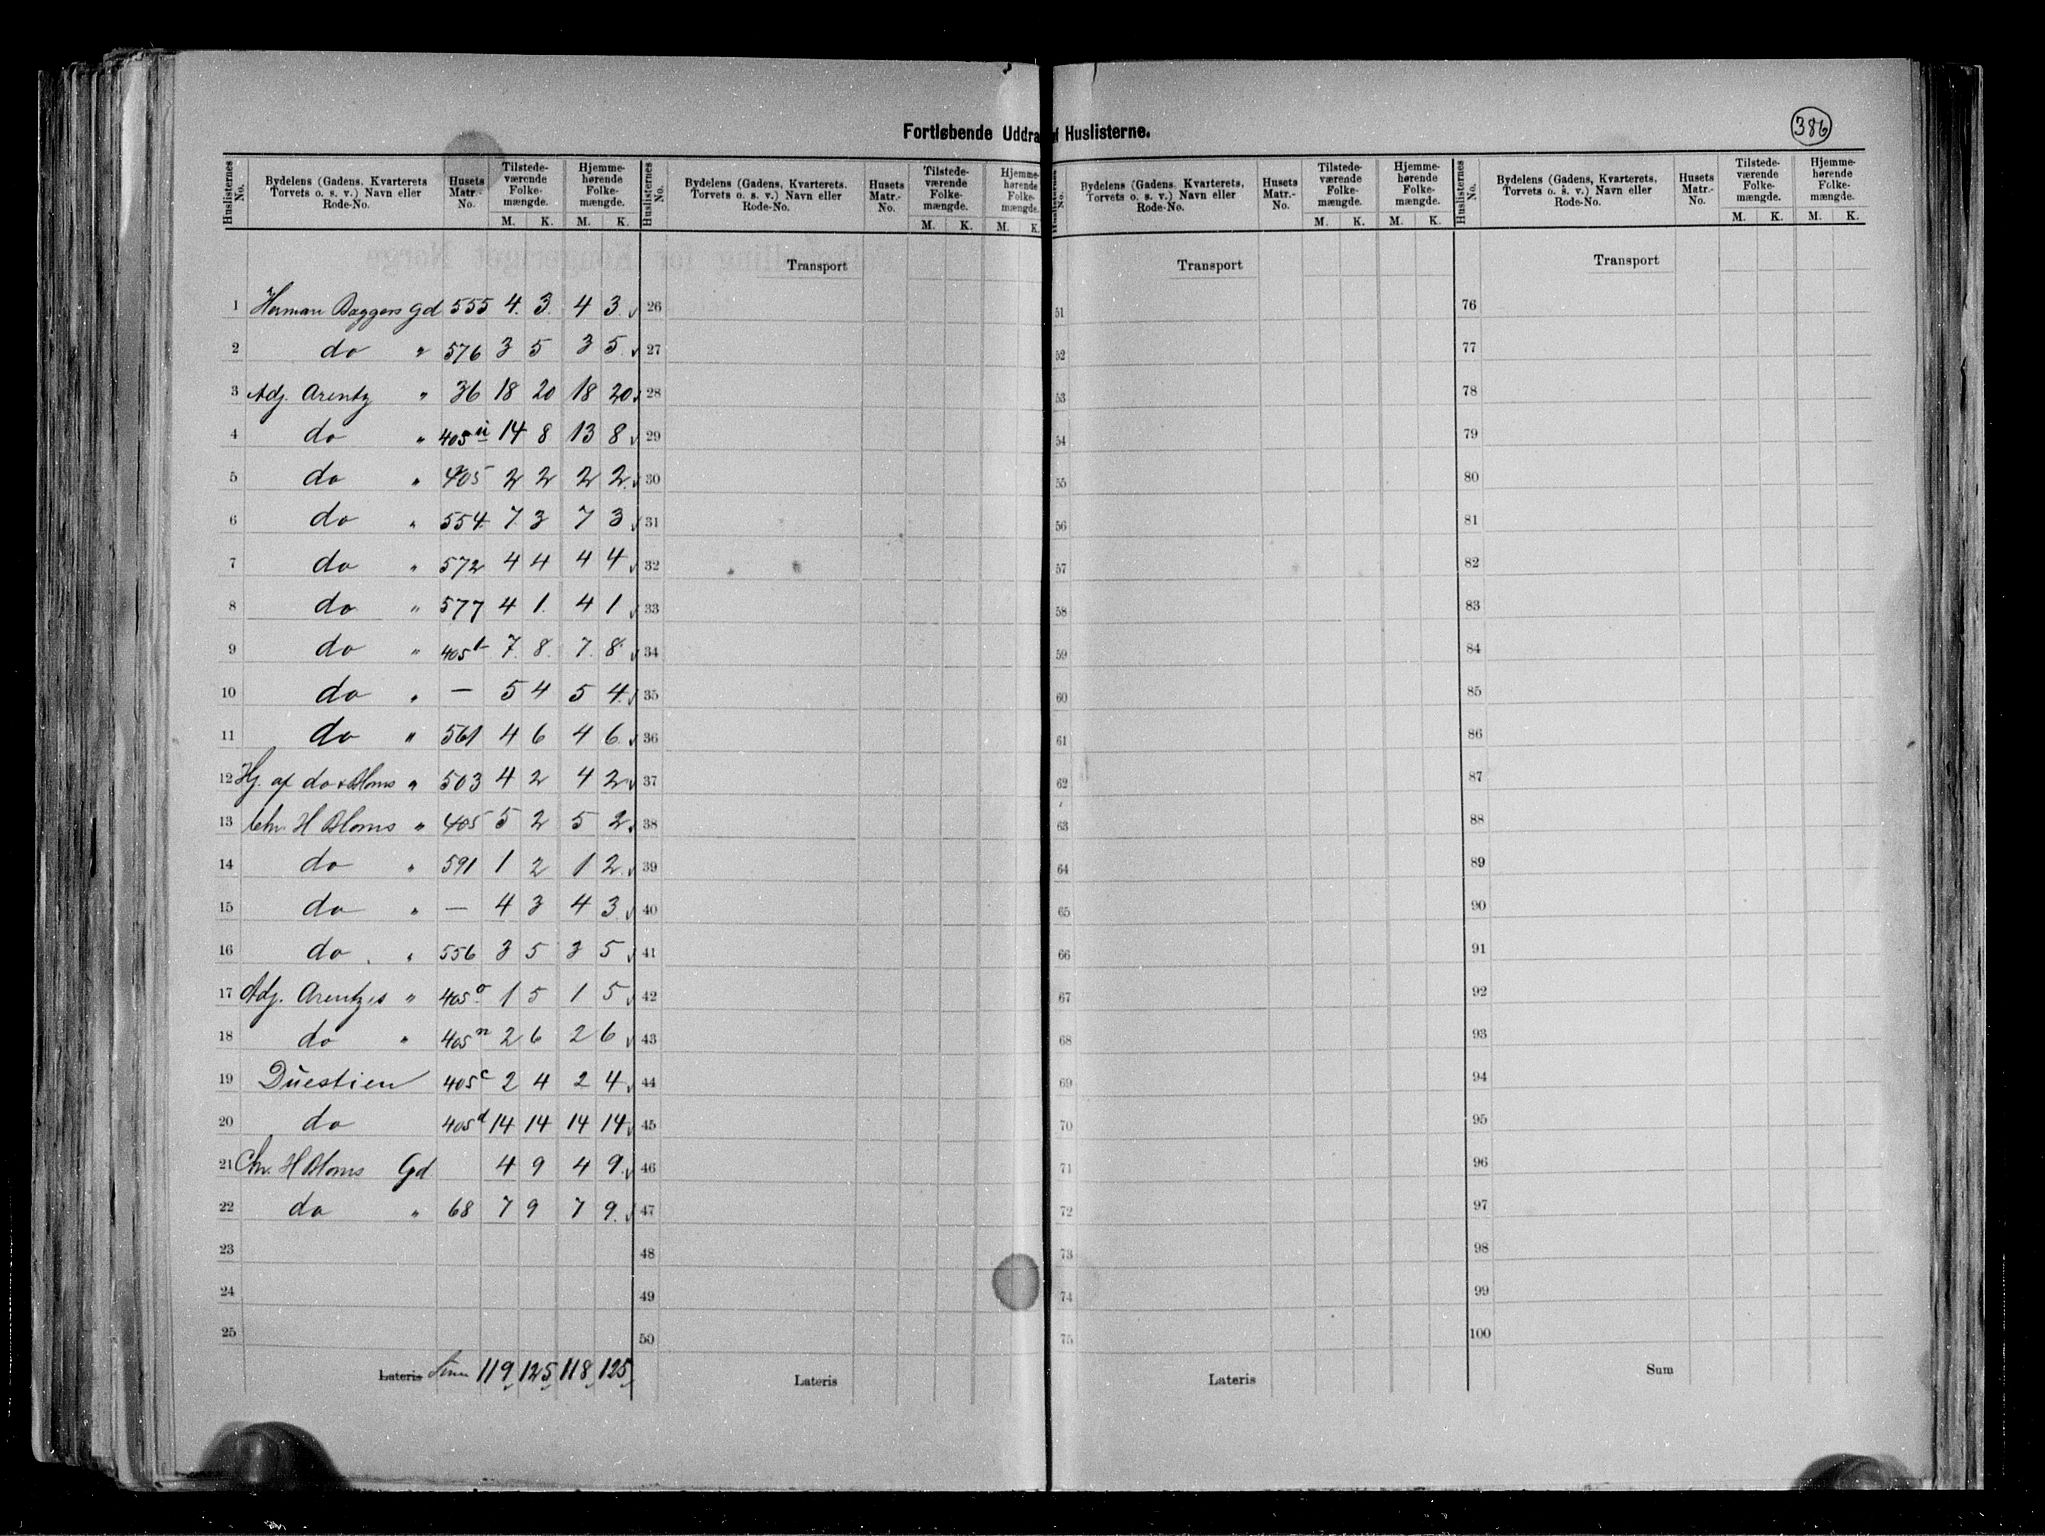 386
Fortløbende Uddra af Huslisterne.
Huslisternes No. Bydelens (Gadens, Kvarterets Torvets o. s. v.) Navn eller Rode-No. Husets Matr.-No. Tilstede-værende Folke-mængde. M. K. Hjemme-hørende Folke-mængde. M. K.
Huslisternes No. Bydelens (Gadens, Kvarterets. Torvets o. s. v.) Navn eller Rode-No. Husets Matr.-No. Tilstede-værende Folke-mængde. M. K. Hjemme-hørende Folke-mængde. M. K.
No. Bydelens (Gadens, Kvarterets, Torvets o. s. v.) Navn eller Rode-No. Husets Matr.-No. Tilstede-værende Folke-mængde. M. K. Hjemme-hørende Folke-mængde. M. K.
Huslisternes No. Bydelens (Gadens, Kvarterets, Torvets o. s. v.) Navn eller Rode-No. Husets Matr.-No. Tilstede-værende Folke-mængde. M. K. Hjemme-hørende Folke-mængde. M. K.
Transport Transport Transport
1 Herman Baggers Gd 555 4 3 4 3 26 51 76
2 do " 576 3 5 3 5 27 52 77
3 Adj. Arentz " 36 18 20 18 20 28 53 78
4 do " 405 u 14 8 13 8 29 54 79
5 do " 405 2 2 2 2 30 55 80
6 do " 554 7 3 7 3 31 56 81
7 do " 572 4 4 4 4 32 57 82
8 do " 577 4 1 4 1 33 58 83
9 do " 405 7 8 7 8 34 59 84
10 do " — 5 4 5 4 35 60 85
11 do " 561 4 6 4 6 36 61 86
12 Hj. af do & Bloms " 503 4 2 4 2 37 62 87
13 Chr. H Bloms " 405 5 2 5 2 38 63 88
14 do " 591 1 2 1 2 39 64 89
15 do " — 4 3 4 3 40 65 90
16 do " 556 3 5 3 5 41 66 91
17 Adj. Arentzes " 405 o 1 5 1 5 42 67 92
18 do " 405 n 2 6 2 6 43 68 93
19 Duestien 405 c 2 4 2 4 44 69 94
20 do 405 d 14 14 14 14 45 70 95
21 Chr. H Bloms Gd 4 9 4 9 46 71 96
22 do " 68 7 9 7 9 47 72 97
23 48 73 98
24 49 74 99
25 50 75 100
Lateris Sum 119 125 118 125 Lateris Lateris Sum